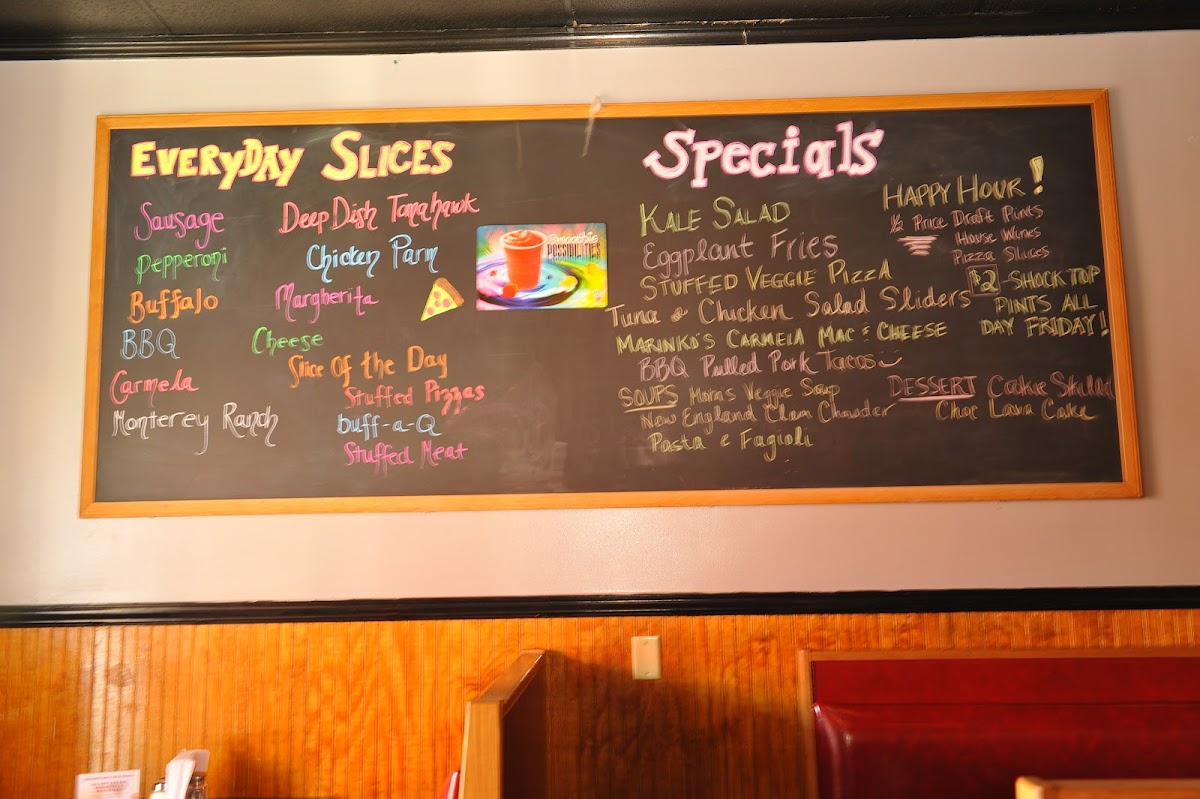 EVERYDAY SLICES
Sausage
Pepperoni
Buffalo
BBQ
Carmela
Monterey Ranch
Deep Dish Tomahawk
Chicken Parm
Margherita
Cheese
Slice Of the Day
Stuffed Pizzas
buff-a-Q
Stuffed Meat
Smoothie
POSSIBILITIES
Specials
KALE SALAD
Eggplant Fries
STUFFED VEGGIE PIZZA
Tuna & Chicken Salad Sliders
MARINKO'S CARMELA MAC & CHEESE
BBQ Pulled Pork Tacos
SOUPS Mom's Veggie Soup
New England Clam Chowder
Pasta e Fagioli
HAPPY HOUR!
½ Price Draft Pints
House Wines
Pizza Slices
$2 - SHOCK TOP
PINTS ALL
DAY FRIDAY!
DESSERT Cookie Skillet
Choc Lava Cake